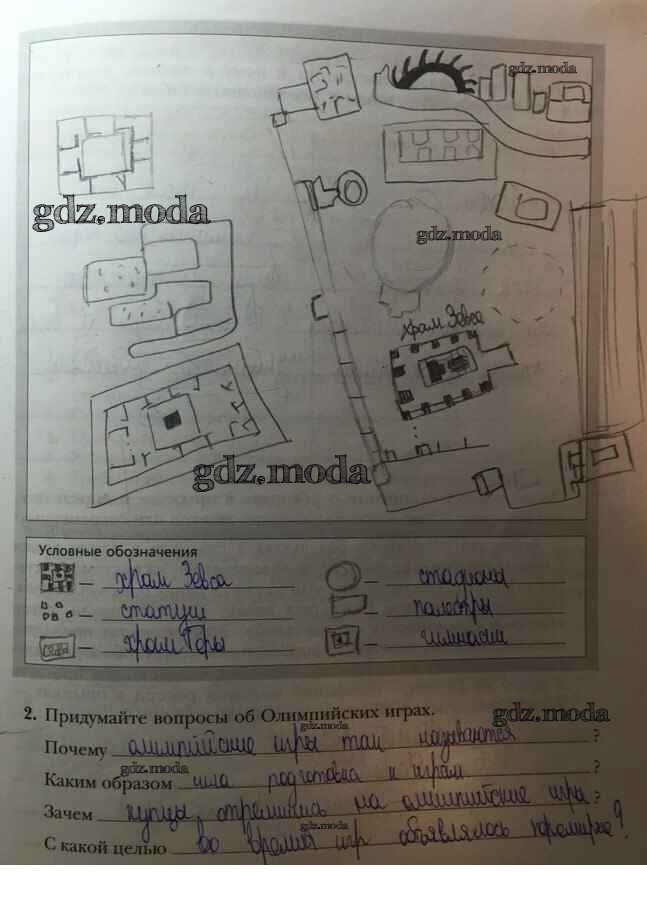 gdz.moda
gdz.moda
gdz.moda
храм Зевса
gdz.moda
Условные обозначения
– храм Зевса
– стадионы
– статуи
– палестры
– храм Геры
– гимнасии
2. Придумайте вопросы об Олимпийских играх.
gdz.moda
Почему олимпийские игры так называются ?
gdz.moda
Каким образом шла подготовка к играм ?
Зачем купцы стремились на олимпийские игры ?
gdz.moda
С какой целью во время игр объявлялось перемирие?